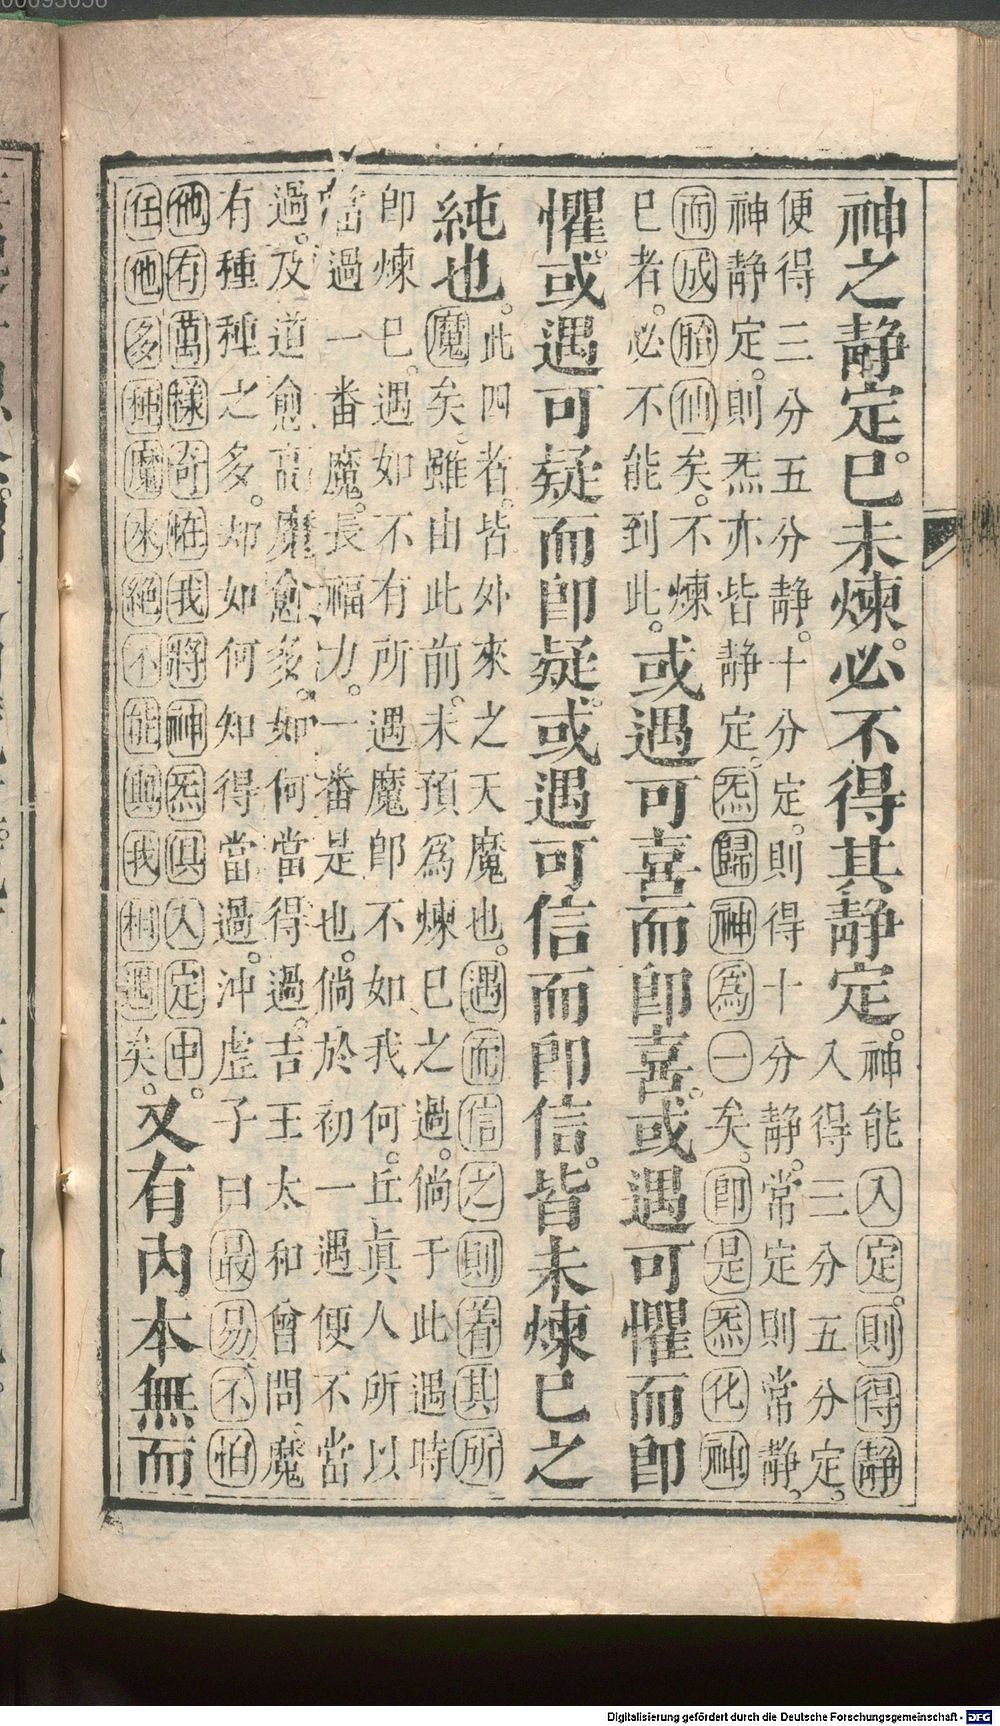 神之静定。已未煉。必不得其静定。神能入定。則得静
入得三分五分定。
便得三分五分静。十分定。則得十分静。常定則常静。
神静定。則炁亦皆静定。炁歸神為一矣。即是炁化神
而成胎仙矣。不煉
已者。必不能到此。或遇可喜而即喜。或遇可懼而即
懼。或遇可疑而即疑。或遇可信而即信。皆未煉已之
純也。此四者。皆外來之天魔也。遇而信之則着其所
魔矣。雖由此前。未預為煉已之過。倘于此遇時
即煉已。遇如不有所遇魔即不如我何。丘真人所以
當過一番魔。長福力。一番是也。倘於初一遇便不當
過。及道愈高魔愈多。如何當得過。吉王太和曾問魔
有種種之多。却如何知得當過。沖虛子曰最易不怕
他有萬樣奇怪我將神炁俱入定中。
任他多種魔來絕不能與我相遇矣。又有內本無而
Digitalisierung gefördert durch die Deutsche Forschungsgemeinschaft - DFG